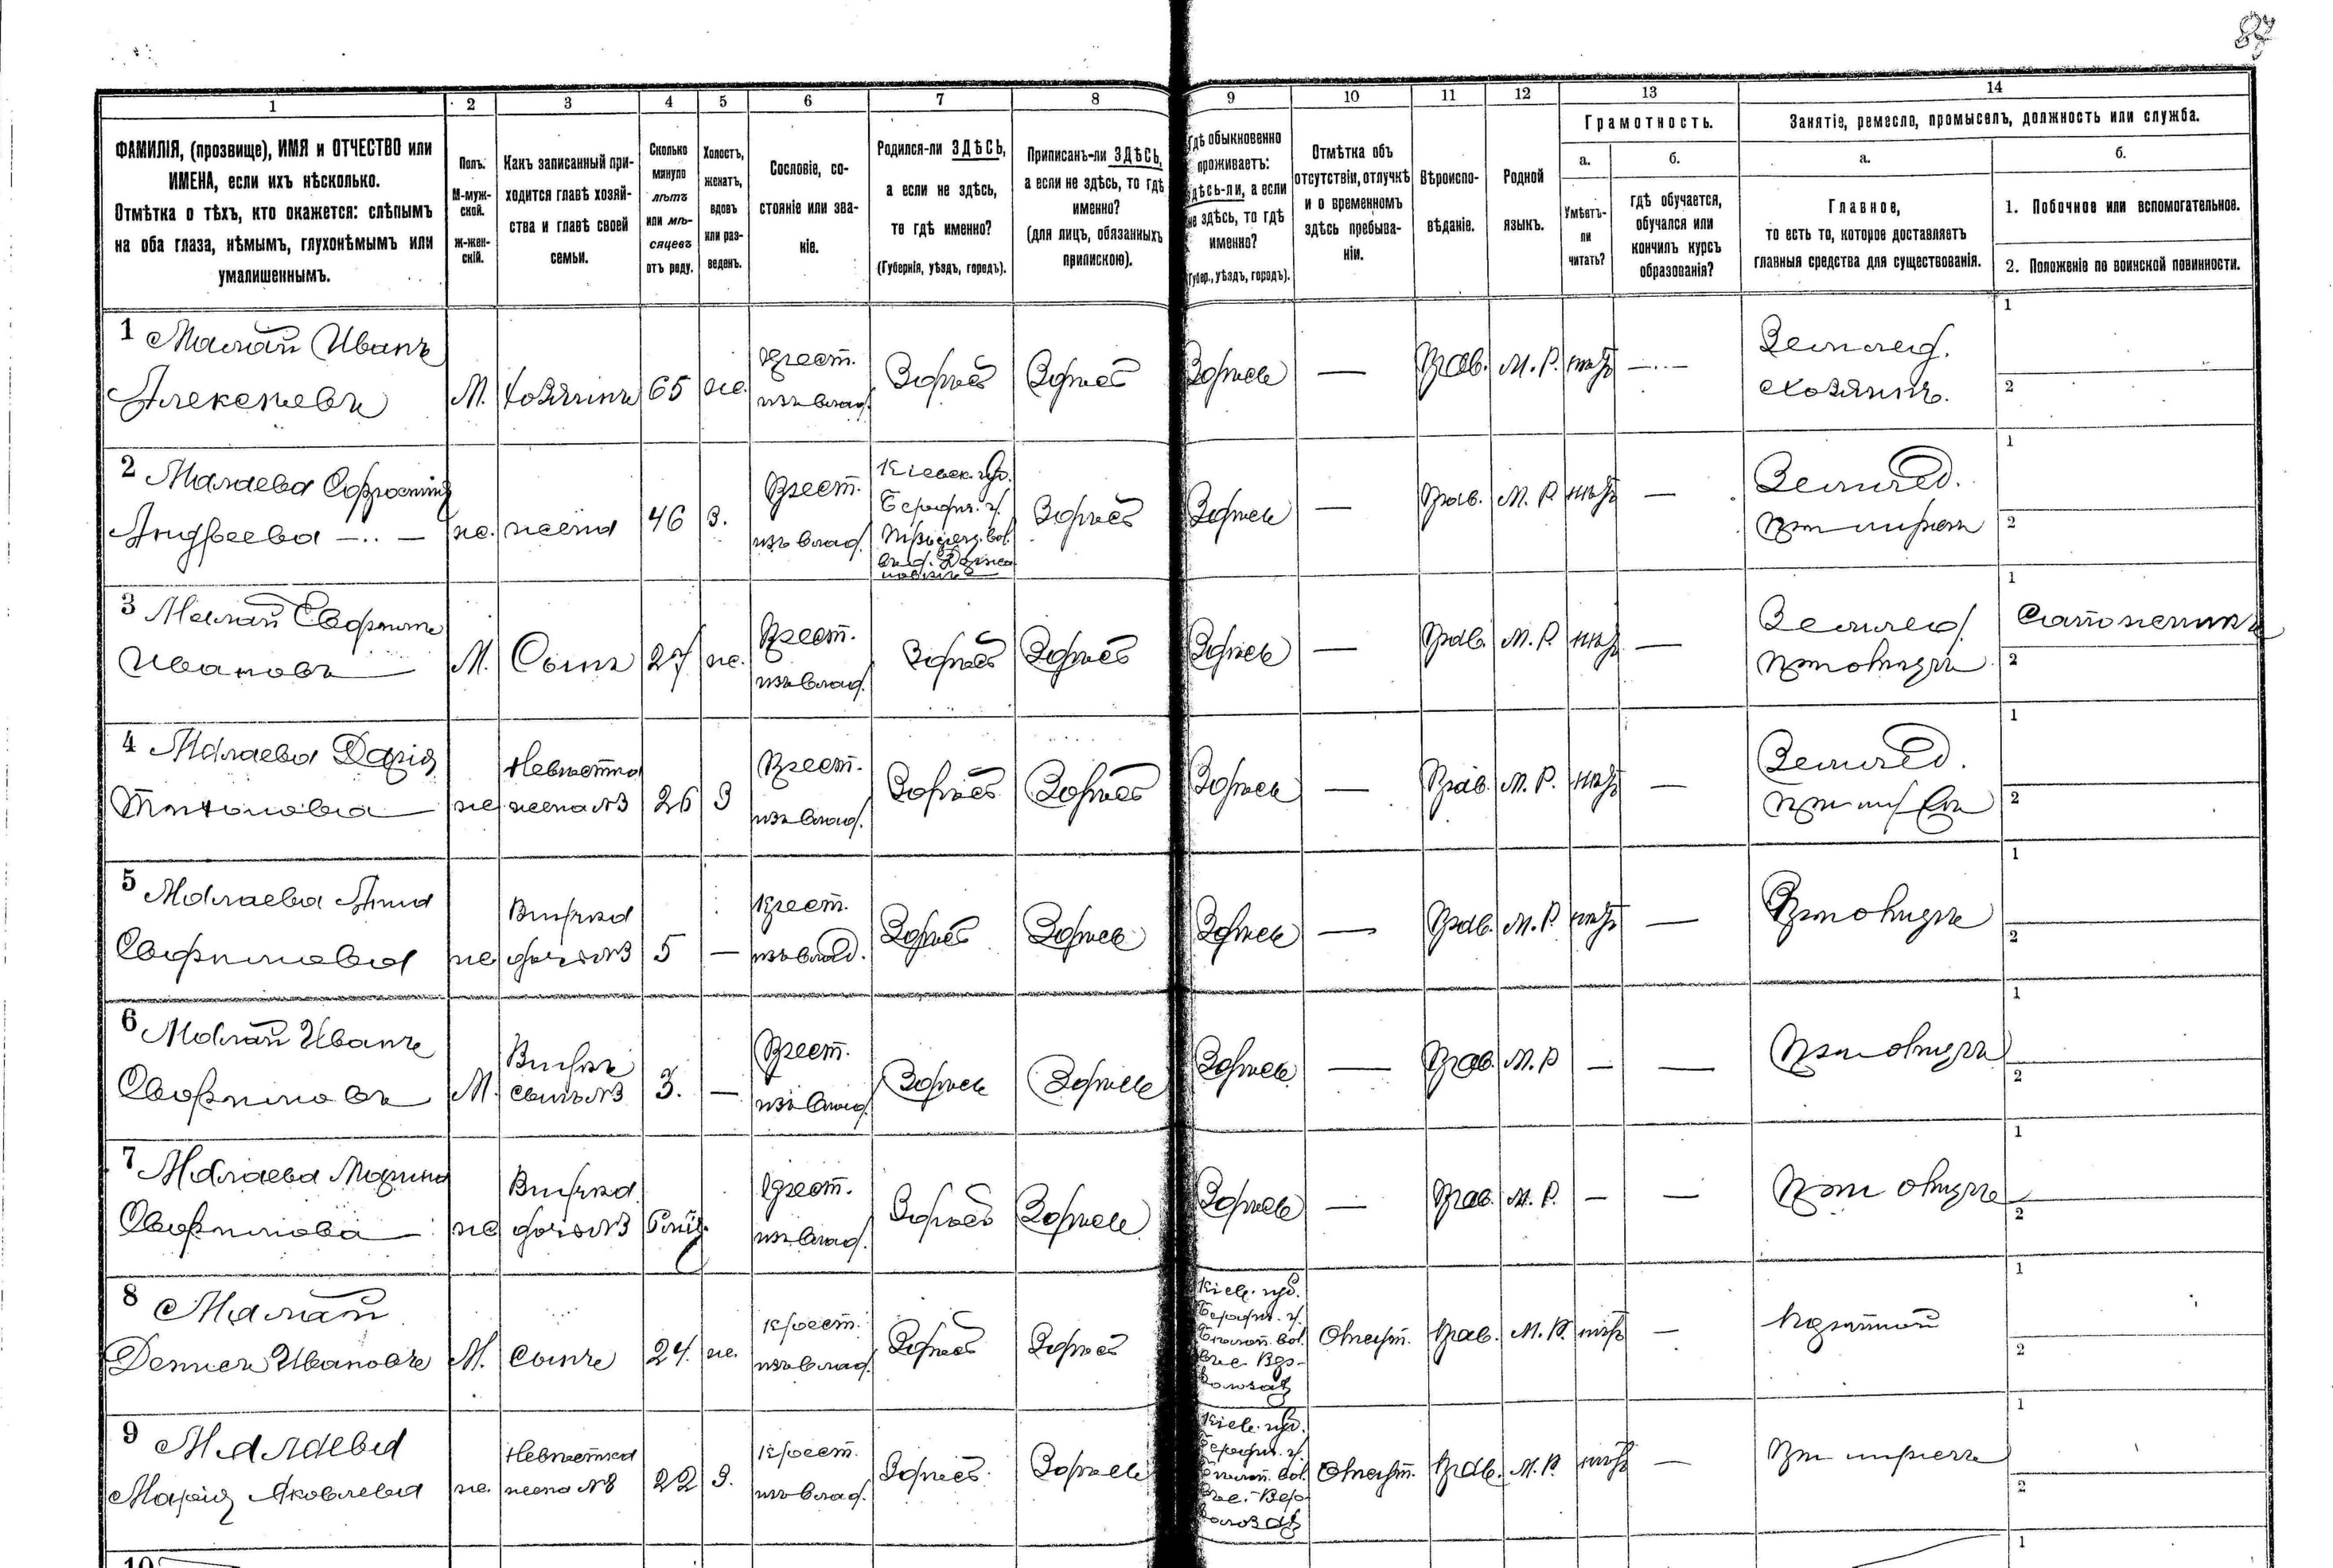 87
1 2 3 4 5 6 7 8 9 10 11 12 13 14
ФАМИЛІЯ, (прозвище), ИМЯ и ОТЧЕСТВО или
ИМЕНА, если ихъ нѣсколько.
Отмѣтка о тѣхъ, кто окажется: слѣпымъ
на оба глаза, нѣмымъ, глухонѣмымъ или
умалишеннымъ.
Полъ.
М-муж-
ской.
Ж-жен-
скій.
Какъ записанный при-
ходится главѣ хозяй-
ства и главѣ своей
семьи.
Сколько
минуло
лѣтъ
или мѣ-
сяцевъ
отъ роду.
Холостъ,
женатъ,
вдовъ
или раз-
веденъ.
Сословіе, со-
стояніе или зва-
ніе.
Родился-ли ЗДѢСЬ,
а если не здѣсь,
то гдѣ именно?
(Губернія, уѣздъ, городъ).
Приписанъ-ли ЗДѢСЬ,
а если не здѣсь, то гдѣ
именно?
(для лицъ, обязанныхъ
припискою).
Гдѣ обыкновенно
проживаетъ:
здѣсь-ли, а если
не здѣсь, то гдѣ
именно?
(Губер., уѣздъ, городъ).
Отмѣтка объ
отсутствіи, отлучкѣ
и о временномъ
здѣсь пребыва-
ніи.
Вѣроиспо-
вѣданіе.
Родной
языкъ.
Грамотность.
а.
Умѣетъ-
ли
читать?
б.
гдѣ обучается,
обучался или
кончилъ курсъ
образованія?
Занятіе, ремесло, промыселъ, должность или служба.
а.
Главное,
то есть то, которое доставляетъ
главныя средства для существованія.
б.
1. Побочное или вспомогательное.
2. Положеніе по воинской повинности.
1 Малай Иванъ
Алексѣевъ
М. Хозяинъ 65 ж. Крест.
изъ влад. Здѣсь Здѣсь Здѣсь — Прав. М. Р. нѣтъ —
Землед.
Хозяинъ.
1
2
2 Малаева
Андреева — ж. жена 46 З. Крест.
изъ влад. Кіевск. губ.
Бердич. у.
Здѣсь Здѣсь — Прав. М. Р. нѣтъ —
Землед.
при мужѣ
1
2
3 Малай
Ивановъ М. Сынъ 27 ж. Крест.
изъ влад. Здѣсь Здѣсь Здѣсь — Прав. М. Р. нѣтъ —
Землед.
при отцѣ
1 Сапожникъ
2
4 Малаева Дарія
ж Невѣстка
жена №3 26 З Крест.
изъ влад. Здѣсь Здѣсь Здѣсь — Прав. М. Р. нѣтъ —
Землед.
при мужѣ
1
2
5 Малаева Анна
ж Внучка
дочь №3 5 — Крест.
изъ влад. Здѣсь Здѣсь Здѣсь — Прав. М. Р. нѣтъ —
При отцѣ
1
2
6 Малай Иванъ
М. Внукъ
сынъ №3 3. — Крест.
изъ влад. Здѣсь Здѣсь Здѣсь — Прав. М. Р — —
При отцѣ
1
2
7 Малаева Марина
ж Внучка
дочь №3 6 мѣс. Крест.
изъ влад. Здѣсь Здѣсь Здѣсь — Прав. М. Р. — —
При отцѣ
1
2
8 Малай
Ивановъ М. сынъ 24. ж. Крест.
изъ влад. Здѣсь Здѣсь Кіев. губ.
Бердич. у.
Отсут. Прав. М. Р. нѣтъ —
1
2
9 Малаева
Марія Яковлева ж. Невѣстка
жена №8 22 З. Крест.
изъ влад. Здѣсь Здѣсь Кіев. губ.
Бердич. у.
Отсут. Прав. М. Р. нѣтъ —
При мужѣ
1
2
10
1